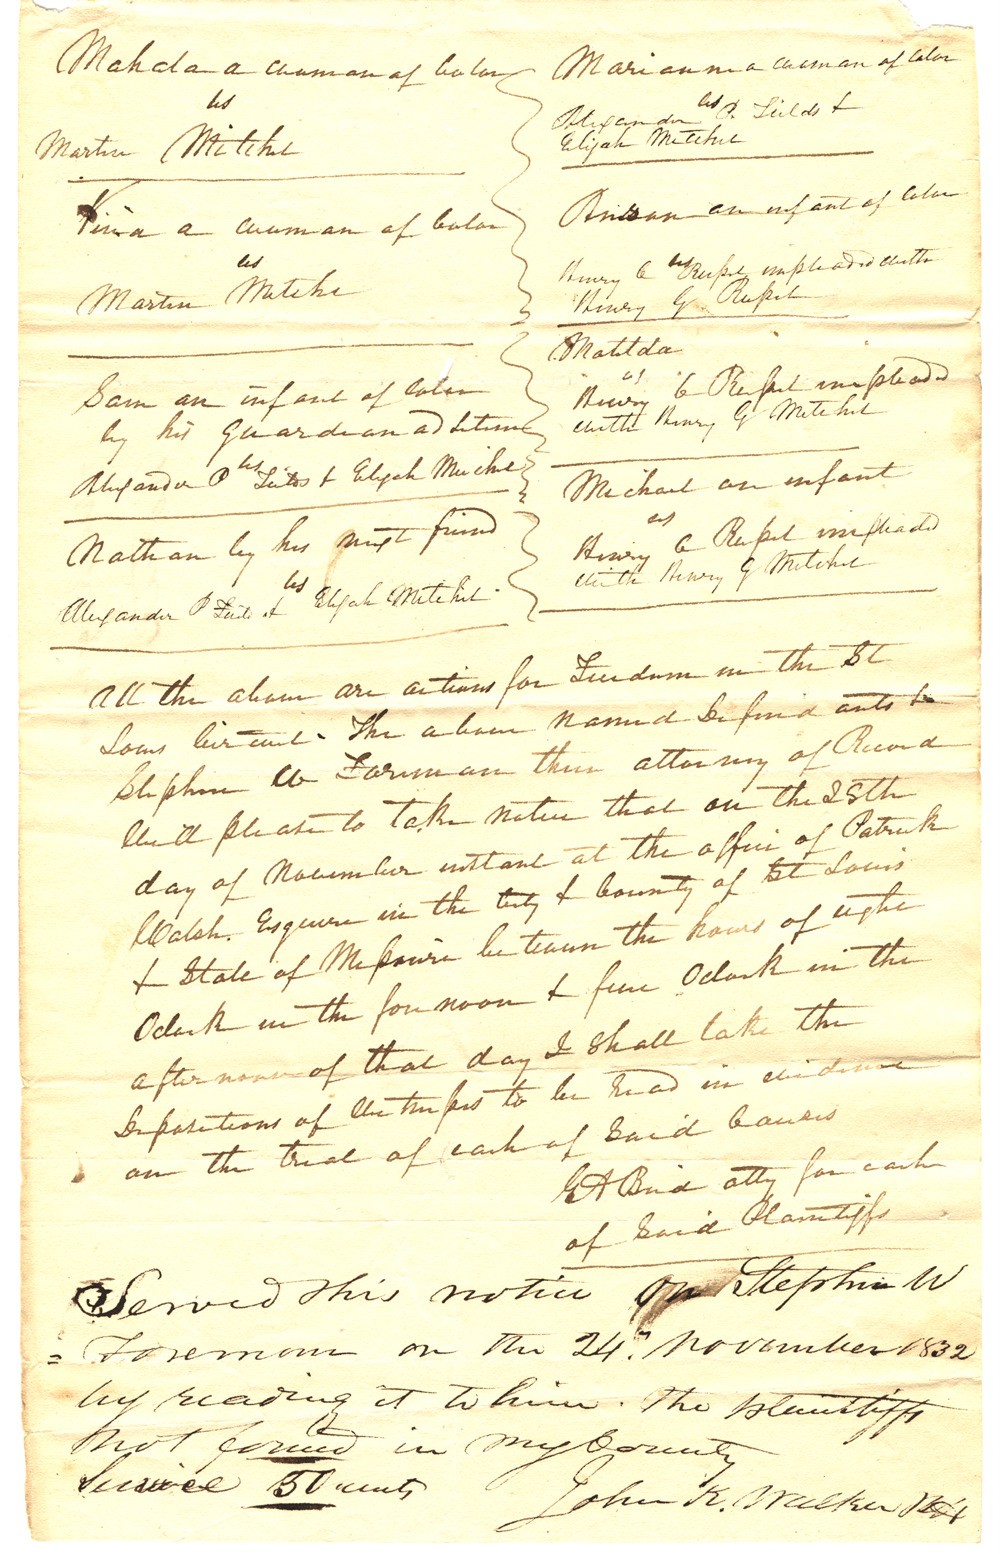 Mahala a woman of Color
vs
Martin Mitchel
Vina a woman of Color
vs
Martin Mitchel
Sam an infant of Color
by his guardian ad litim
vs
Alexander P Fields & Elijah Mitchel
Nathan by his next friend
vs
Alexander P Fields & Elijah Mitchel
Mariann a woman of Color
vs
Alexander P. Fields &
Elijah Mitchel
an infant of Color
vs
Henry C Russel impleaded with
Henry G Russel
Matilda
vs
Henry C Russel impleaded
with Henry G Mitchel
Michael an infant
vs
Henry C Russel impleaded
with Henry G Mitchel
All the above are actions for Freedom in the St
Louis Circuit. The above named Defendants &
Stephen W Foreman their attorney of Record
Will please to take notice that on the 25th
day of November instant at the office of Patrick
Walsh. Esquire in the City & County of St Louis
& State of Missouri between the hours of eight
Oclock in the forenoon & five Oclock in the
afternoon of that day I shall take the
Depositions of Witnesses to be Read in evidence
on the trial of each of Said Causes
G A Bird atty for each
of Said Plaintiffs
Served this notice on Stephen W
Foreman on the 24th November 1832
by reading it to him. The plaintiffs
not found in my County
Service 50 cents
John K. Walker Shff